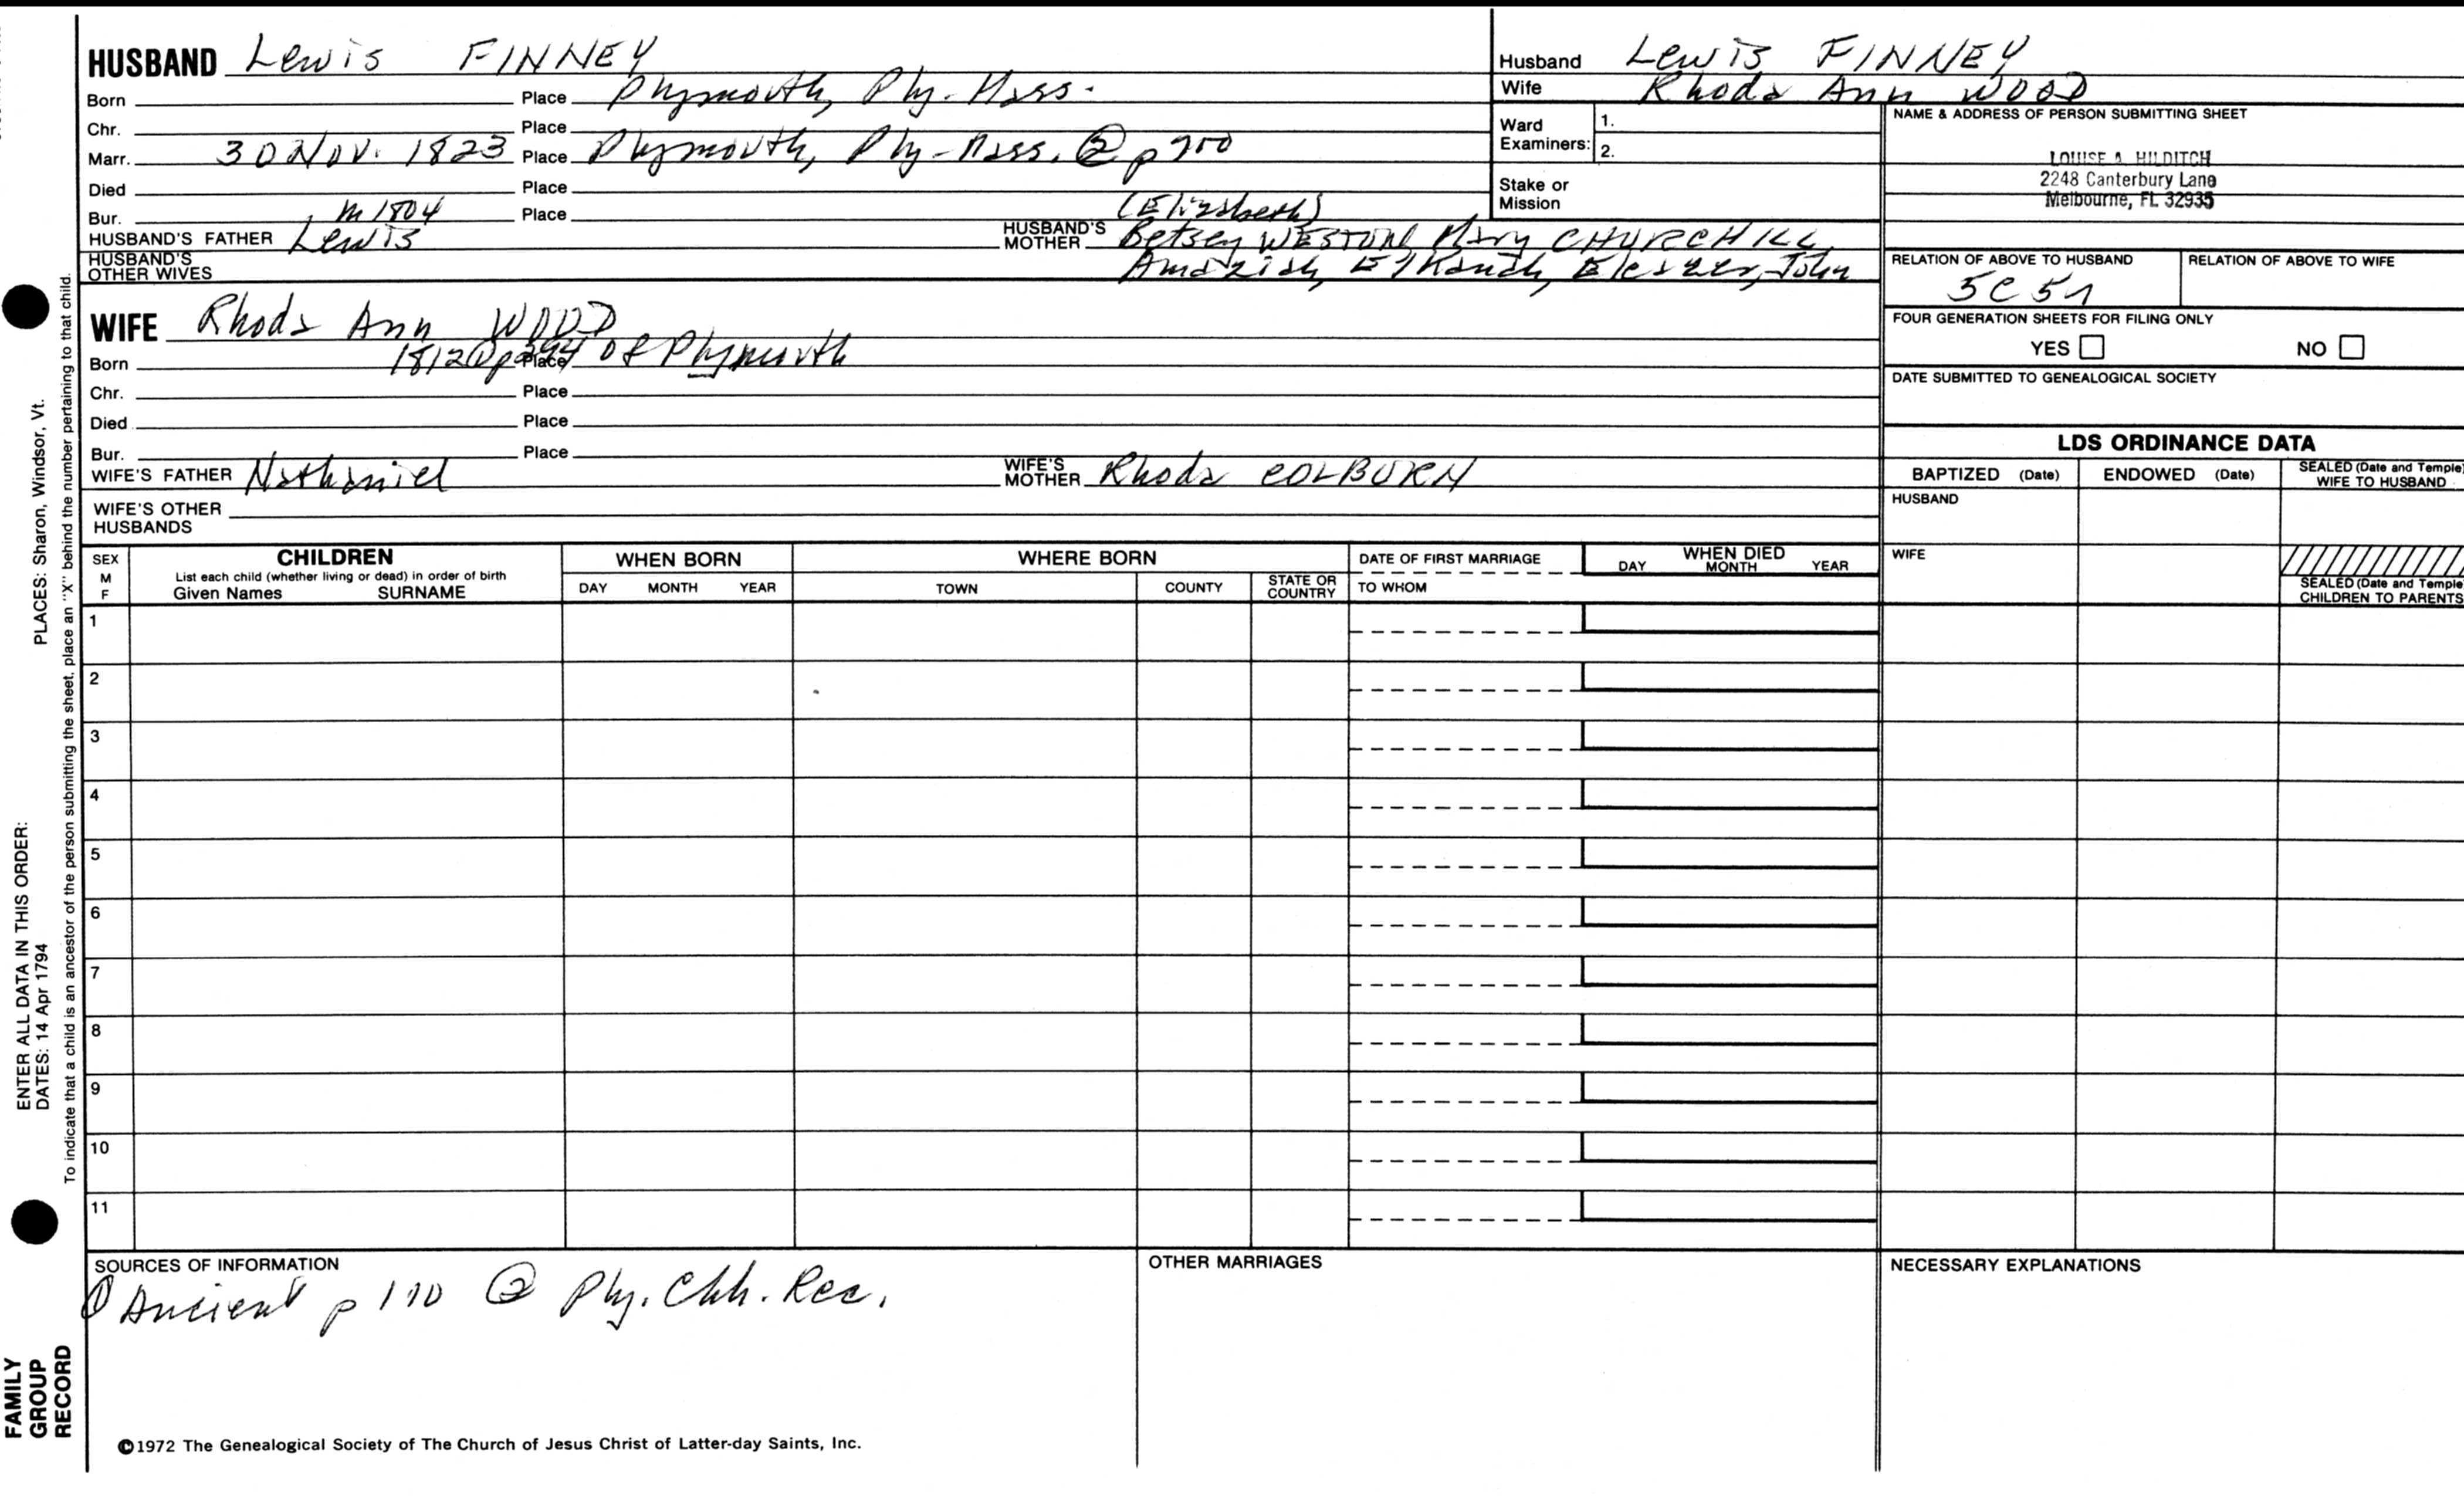 HUSBAND Lewis FINNEY
Born Place Plymouth, Ply-Mass.
Chr. Place
Marr. 30 Nov. 1823 Place Plymouth, Ply-Mass. ② p 700
Died Place
Bur. m 1804 Place (Elizabeth)
HUSBAND'S FATHER Lewis HUSBAND'S MOTHER Betsey WESTON, Mary CHURCHILL,
HUSBAND'S OTHER WIVES Amaziah, Elkanah, Eleazer, John
Husband Lewis FINNEY
Wife Rhoda Ann WOOD
Ward Examiners: 1.
2.
Stake or Mission
NAME & ADDRESS OF PERSON SUBMITTING SHEET
LOUISE A. HILDITCH
2248 Canterbury Lane
Melbourne, FL 32935
RELATION OF ABOVE TO HUSBAND RELATION OF ABOVE TO WIFE
5C5r
FOUR GENERATION SHEETS FOR FILING ONLY
YES NO
DATE SUBMITTED TO GENEALOGICAL SOCIETY
WIFE Rhoda Ann WOOD
Born 1812 ① Place of Plymouth
Chr. Place
Died Place
Bur. Place
WIFE'S FATHER Nathaniel WIFE'S MOTHER Rhoda COLBURN
WIFE'S OTHER HUSBANDS
LDS ORDINANCE DATA
BAPTIZED (Date) ENDOWED (Date) SEALED (Date and Temple) WIFE TO HUSBAND
HUSBAND
WIFE
SEALED (Date and Temple CHILDREN TO PARENTS
SEX M F
CHILDREN
List each child (whether living or dead) in order of birth
Given Names SURNAME
WHEN BORN
DAY MONTH YEAR
WHERE BORN
TOWN COUNTY STATE OR COUNTRY
DATE OF FIRST MARRIAGE
TO WHOM
WHEN DIED
DAY MONTH YEAR
1
2
3
4
5
6
7
8
9
10
11
SOURCES OF INFORMATION
① Ancient p 110 ② Ply. Chh. Rec.
OTHER MARRIAGES
NECESSARY EXPLANATIONS
©1972 The Genealogical Society of The Church of Jesus Christ of Latter-day Saints, Inc.
PLACES: Sharon, Windsor, Vt.
ENTER ALL DATA IN THIS ORDER:
DATES: 14 Apr 1794
To indicate that a child is an ancestor of the person submitting the sheet, place an "X" behind the number pertaining to that child.
FAMILY
GROUP
RECORD